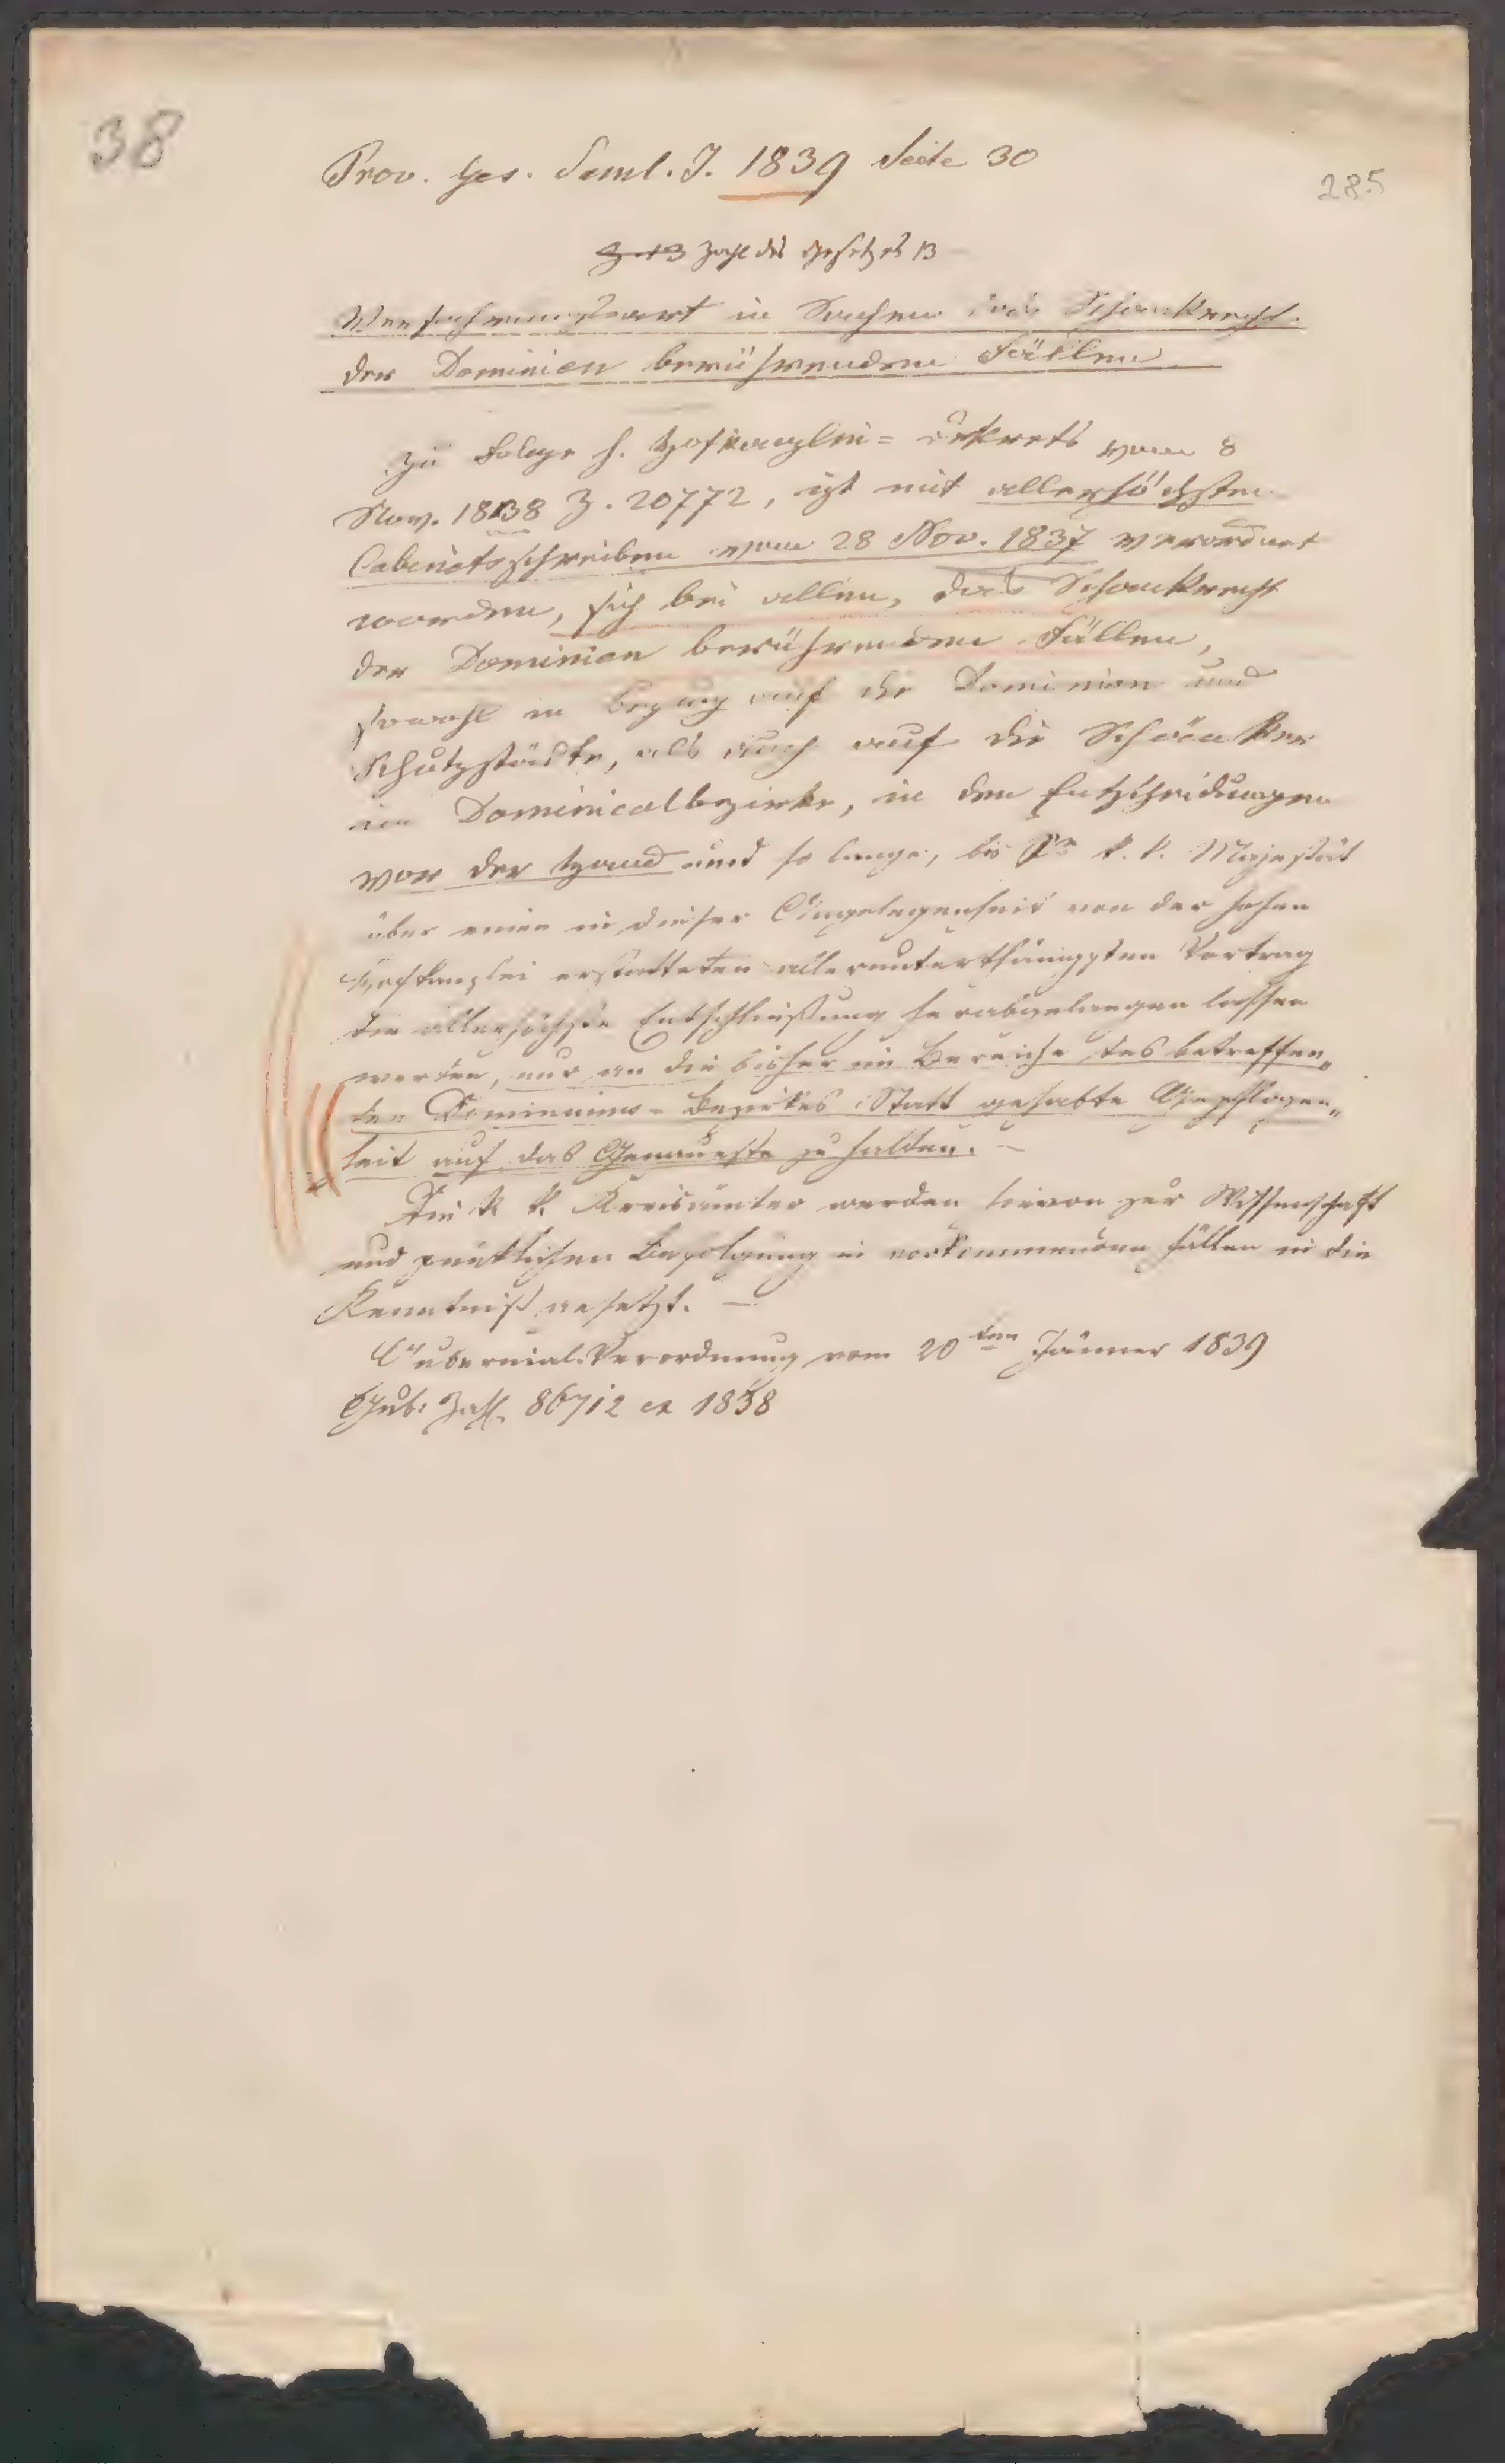 38
Prov. Ges. Saml. J. 1839 Seite 30
285
Z. 13 Zahl des Gesetzes 13
Verfahrungsart in Sachen das Schankrecht
der Dominien berührenden Fällen
Zu Folge h. Hofkanzlei=Dekrets vom 8
Nov. 1838 Z. 20772, ist mit allerhöchsten
Cabinetsschreiben vom 28 Nov. 1837 verordnet
worden, sich bei allen, das Schankrecht
der Dominien berührenden Fällen,
sowohl in Bezug auf die Dominien und
Schutzstädte, als auch auf die Schänker
im Dominicalbezirke, in den Entscheidungen
vor der Hand und so lange, bis Se k. k. Majestät
über einen in dieser Angelegenheit von der hohen
Hofkanzlei erstatteten allerunterthänigsten Vortrag
die allerhöchste Entschließung herabgelangen lassen
werden, nur an die bisher im Bereiche des betreffen„
den Dominiums-Bezirkes Statt gehabte Gepflogen„
heit auf das Genaueste zu halten. –
Die k. k. Kreisämter werden hievon zur Wissenschaft
und pünktlichen Befolgung in vorkommenden Fällen in die
Kenntniß gesetzt. –
Gubernial-Verordnung vom 20ten Jänner 1839
Gub: Zahl 86712 ex 1838